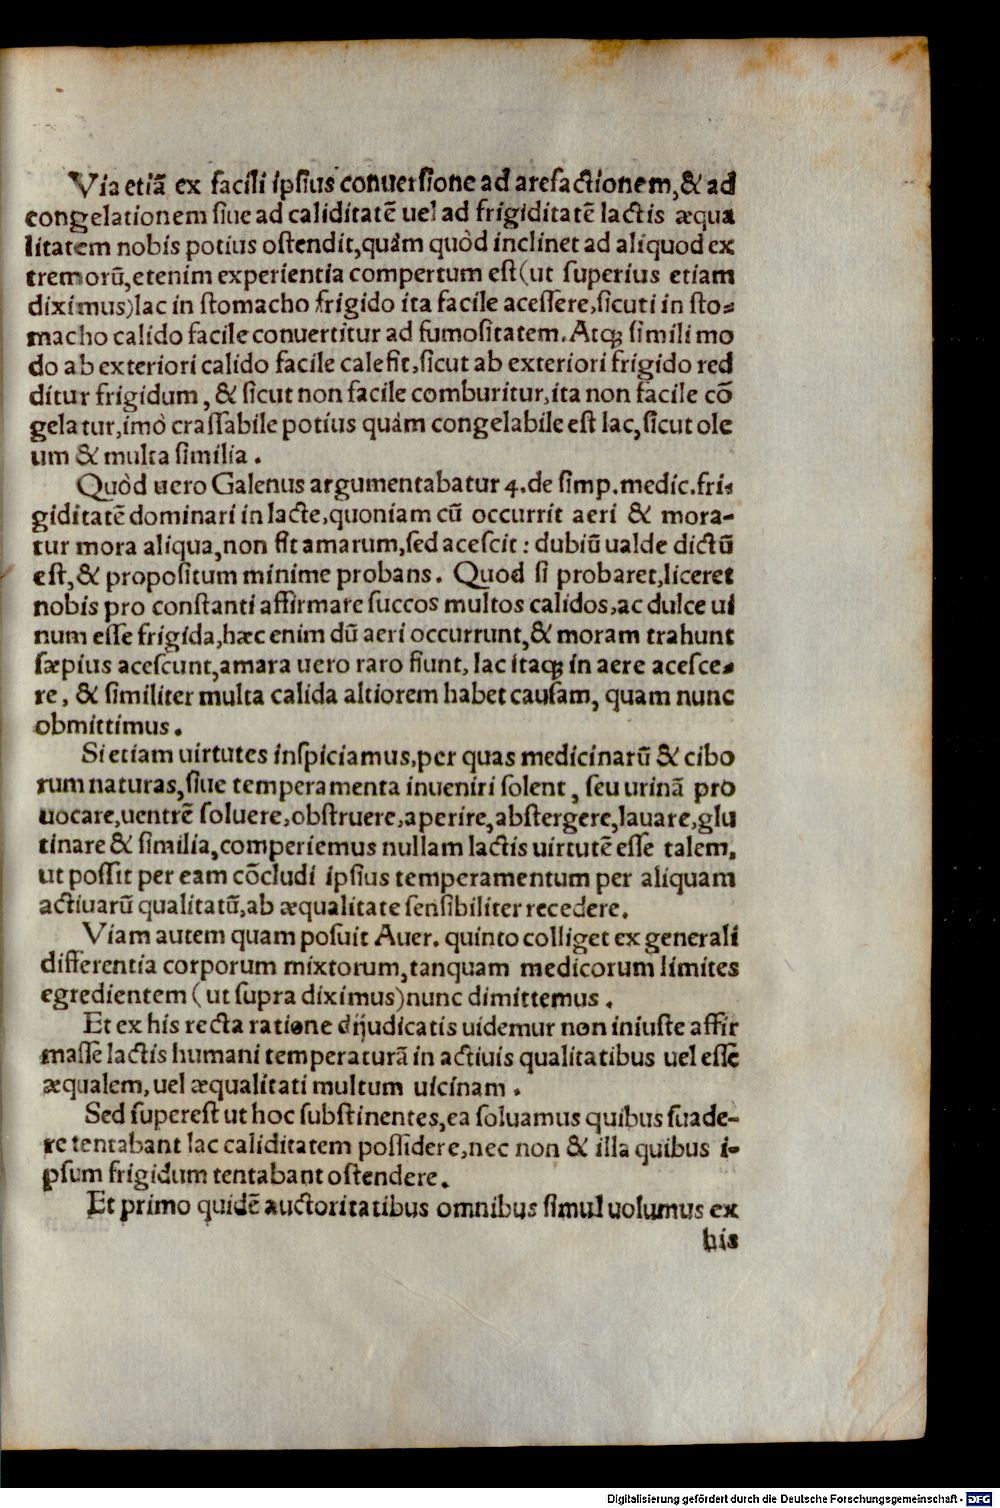 Via etiã ex facili ipsius conuersione ad arefactionem, & ad
congelationem siue ad caliditatẽ uel ad frigiditatẽ lactis æqua
litatem nobis potius ostendit, quàm quòd inclinet ad aliquod ex
tremorũ, etenim experientia compertum est (ut superius etiam
diximus) lac in stomacho frigido ita facile acessere, sicuti in sto-
macho calido facile conuertitur ad fumositatem. Atq; simili mo
do ab exteriori calido facile calefit, sicut ab exteriori frigido red
ditur frigidum, & sicut non facile comburitur, ita non facile cõ
gelatur, imò crassabile potius quàm congelabile est lac, sicut ole
um & multa similia.
Quòd uero Galenus argumentabatur 4. de simp. medic. fri-
giditatẽ dominari in lacte, quoniam cũ occurrit aeri & mora-
tur mora aliqua, non fit amarum, sed acescit: dubiũ ualde dictũ
est, & propositum minime probans. Quod si probaret, liceret
nobis pro constanti affirmare succos multos calidos, ac dulce ui
num esse frigida, hæc enim dũ aeri occurrunt, & moram trahunt
sæpius acescunt, amara uero raro fiunt, lac itaq; in aere acesce-
re, & similiter multa calida altiorem habet causam, quam nunc
obmittimus.
Si etiam uirtutes inspiciamus, per quas medicinarũ & cibo
rum naturas, siue temperamenta inueniri solent, seu urinã pro
uocare, uentrẽ soluere, obstruere, aperire, abstergere, lauare, glu
tinare & similia, comperiemus nullam lactis uirtutẽ esse talem,
ut possit per eam cõcludi ipsius temperamentum per aliquam
actiuarũ qualitatũ, ab æqualitate sensibiliter recedere.
Viam autem quam posuit Auer. quinto colliget ex generali
differentia corporum mixtorum, tanquam medicorum limites
egredientem (ut supra diximus) nunc dimittemus.
Et ex his recta ratione dijudicatis uidemur non iniuste affir
masse lactis humani temperaturã in actiuis qualitatibus uel esse
æqualem, uel æqualitati multum uicinam.
Sed superest ut hoc substinentes, ea soluamus quibus suade-
re tentabant lac caliditatem possidere, nec non & illa quibus i-
psum frigidum tentabant ostendere.
Et primo quidẽ auctoritatibus omnibus simul uolumus ex
his
Digitalisierung gefördert durch die Deutsche Forschungsgemeinschaft - DFG